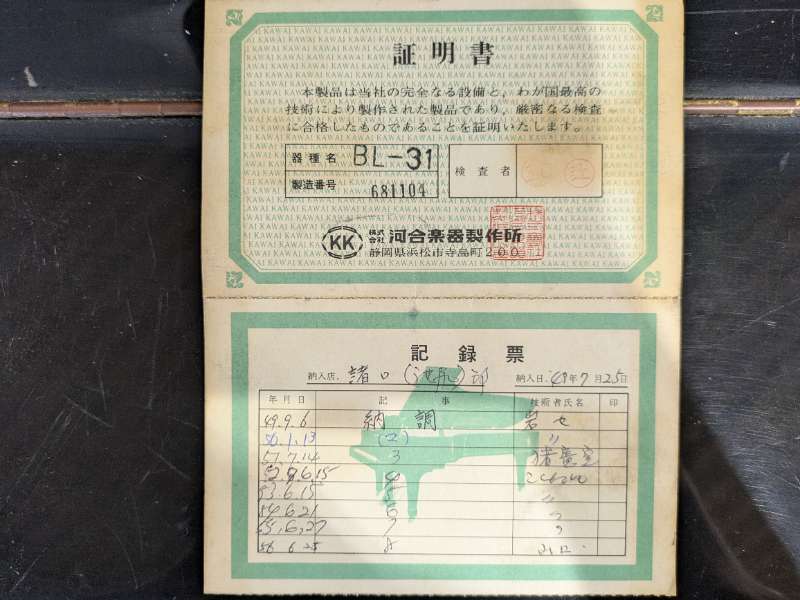 証明書
本製品は当社の完全なる設備と、わが国最高の
技術により製作された製品であり、厳密なる検査
に合格したものであることを証明いたします。
器種名 BL-31 検査者
製造番号 681104
KK 株式会社 河合楽器製作所
静岡県浜松市寺島町200
記録票
納入店. 諸口 納入日. 49年7月25日
年月日 記事 技術者氏名 印
49.9.6 納調 岩セ
50.1.13 (2) 〃
51.7.14 3
52.9.6.15 4
53.6.15 5 〃
54.6.21 6 〃
55.6.27 7 〃
56 6 25 8 山口